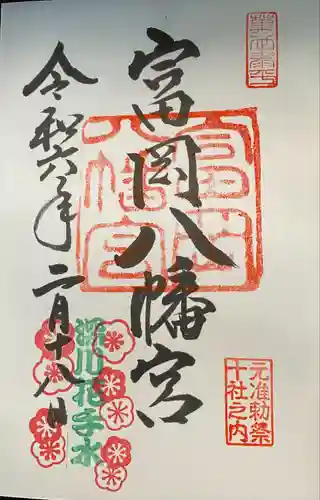 富岡八幡宮
令和六年二月十八日
深川花手水
元准勅祭
十社之内
富岡
八幡宮